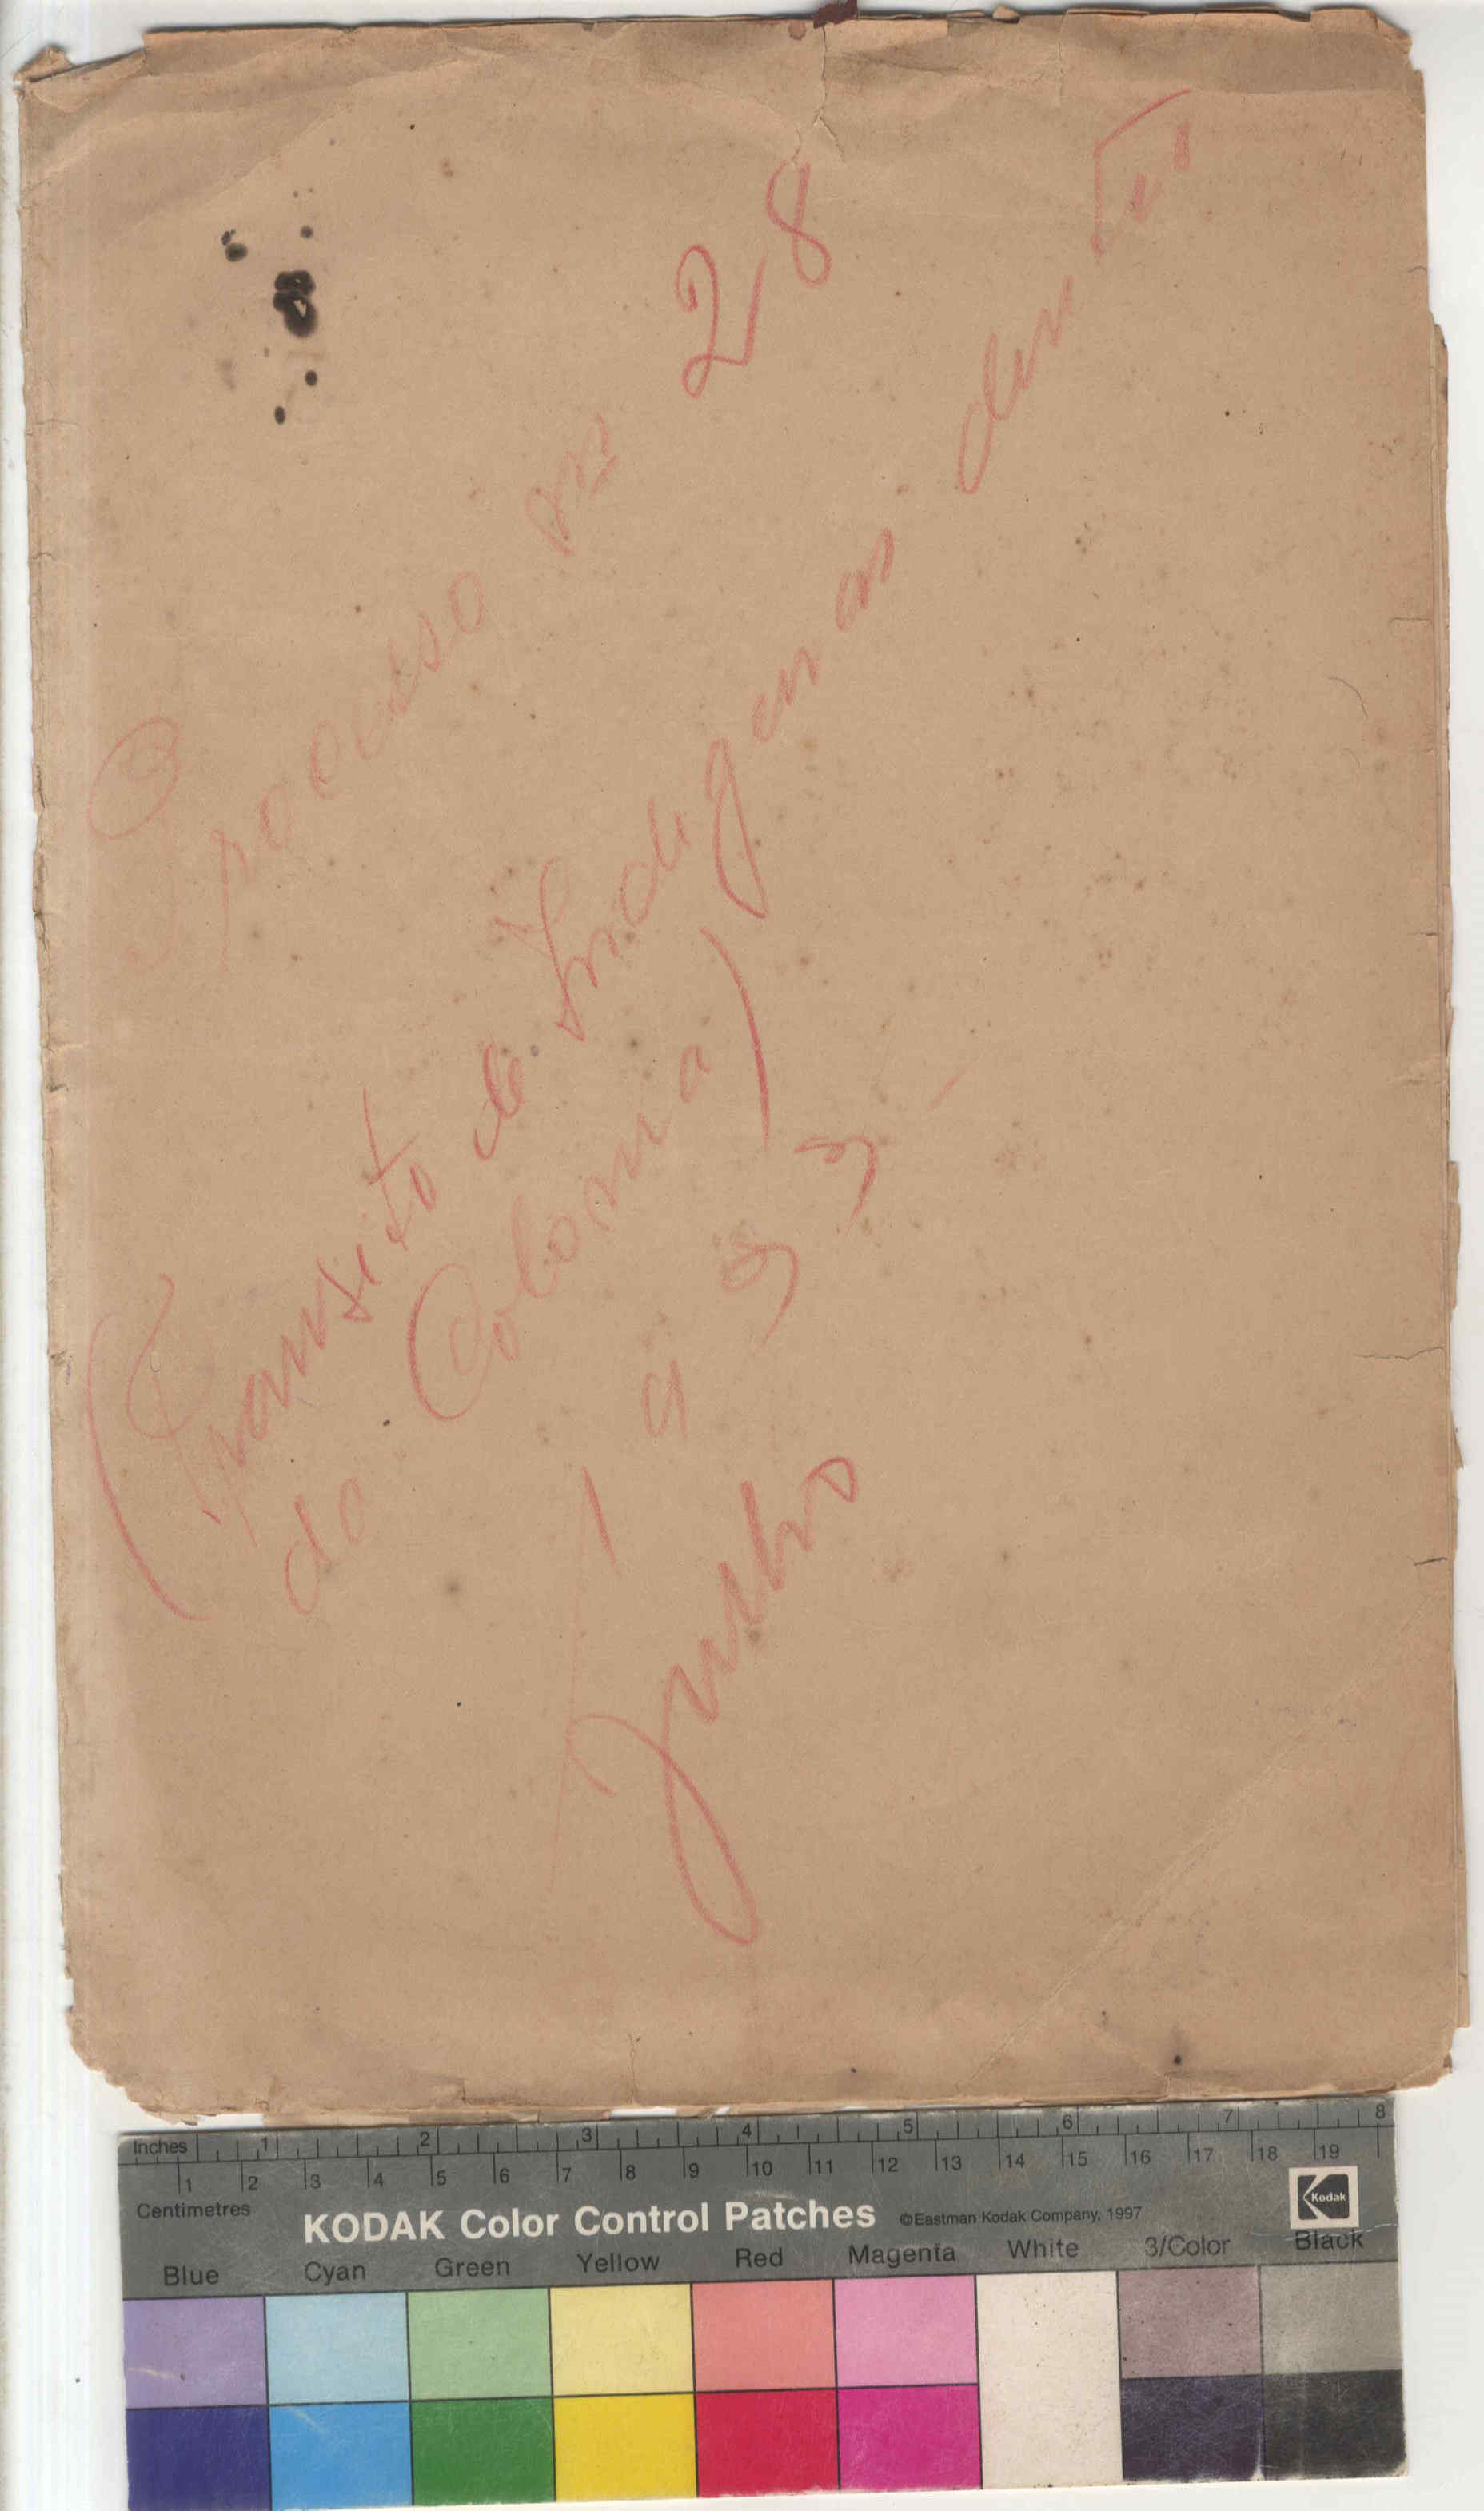 Processo nº 28
(Transito de Indigenas dentro
da Colonia)
1933-
Julho
Inches 1 2 3 4 5 6 7 8
1 2 3 4 5 6 7 8 9 10 11 12 13 14 15 16 17 18 19
Centimetres
KODAK Color Control Patches ©Eastman Kodak Company, 1997 Kodak
Blue Cyan Green Yellow Red Magenta White 3/Color Black